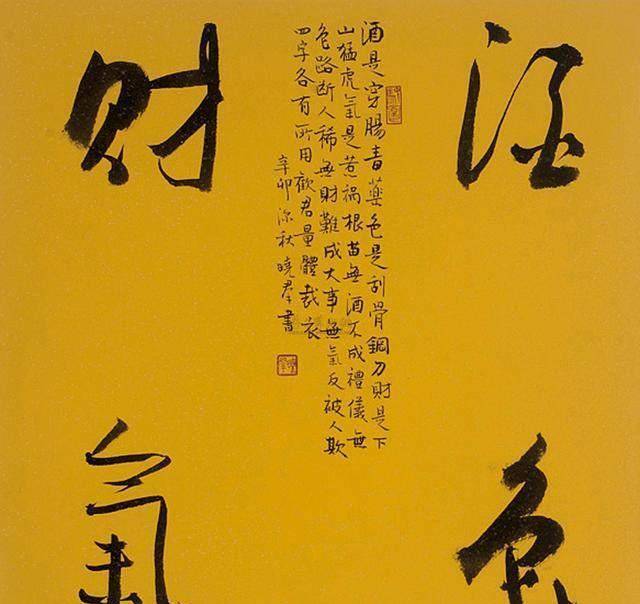 酒
色
酒是穿腸毒藥色是刮骨鋼刀財是下
山猛虎氣是惹禍根苗無酒不成禮儀無
色路断人稀無財難成大事無氣反被人欺
四字各有所用勸君量體裁衣
辛卯深秋曉羣書
財
氣